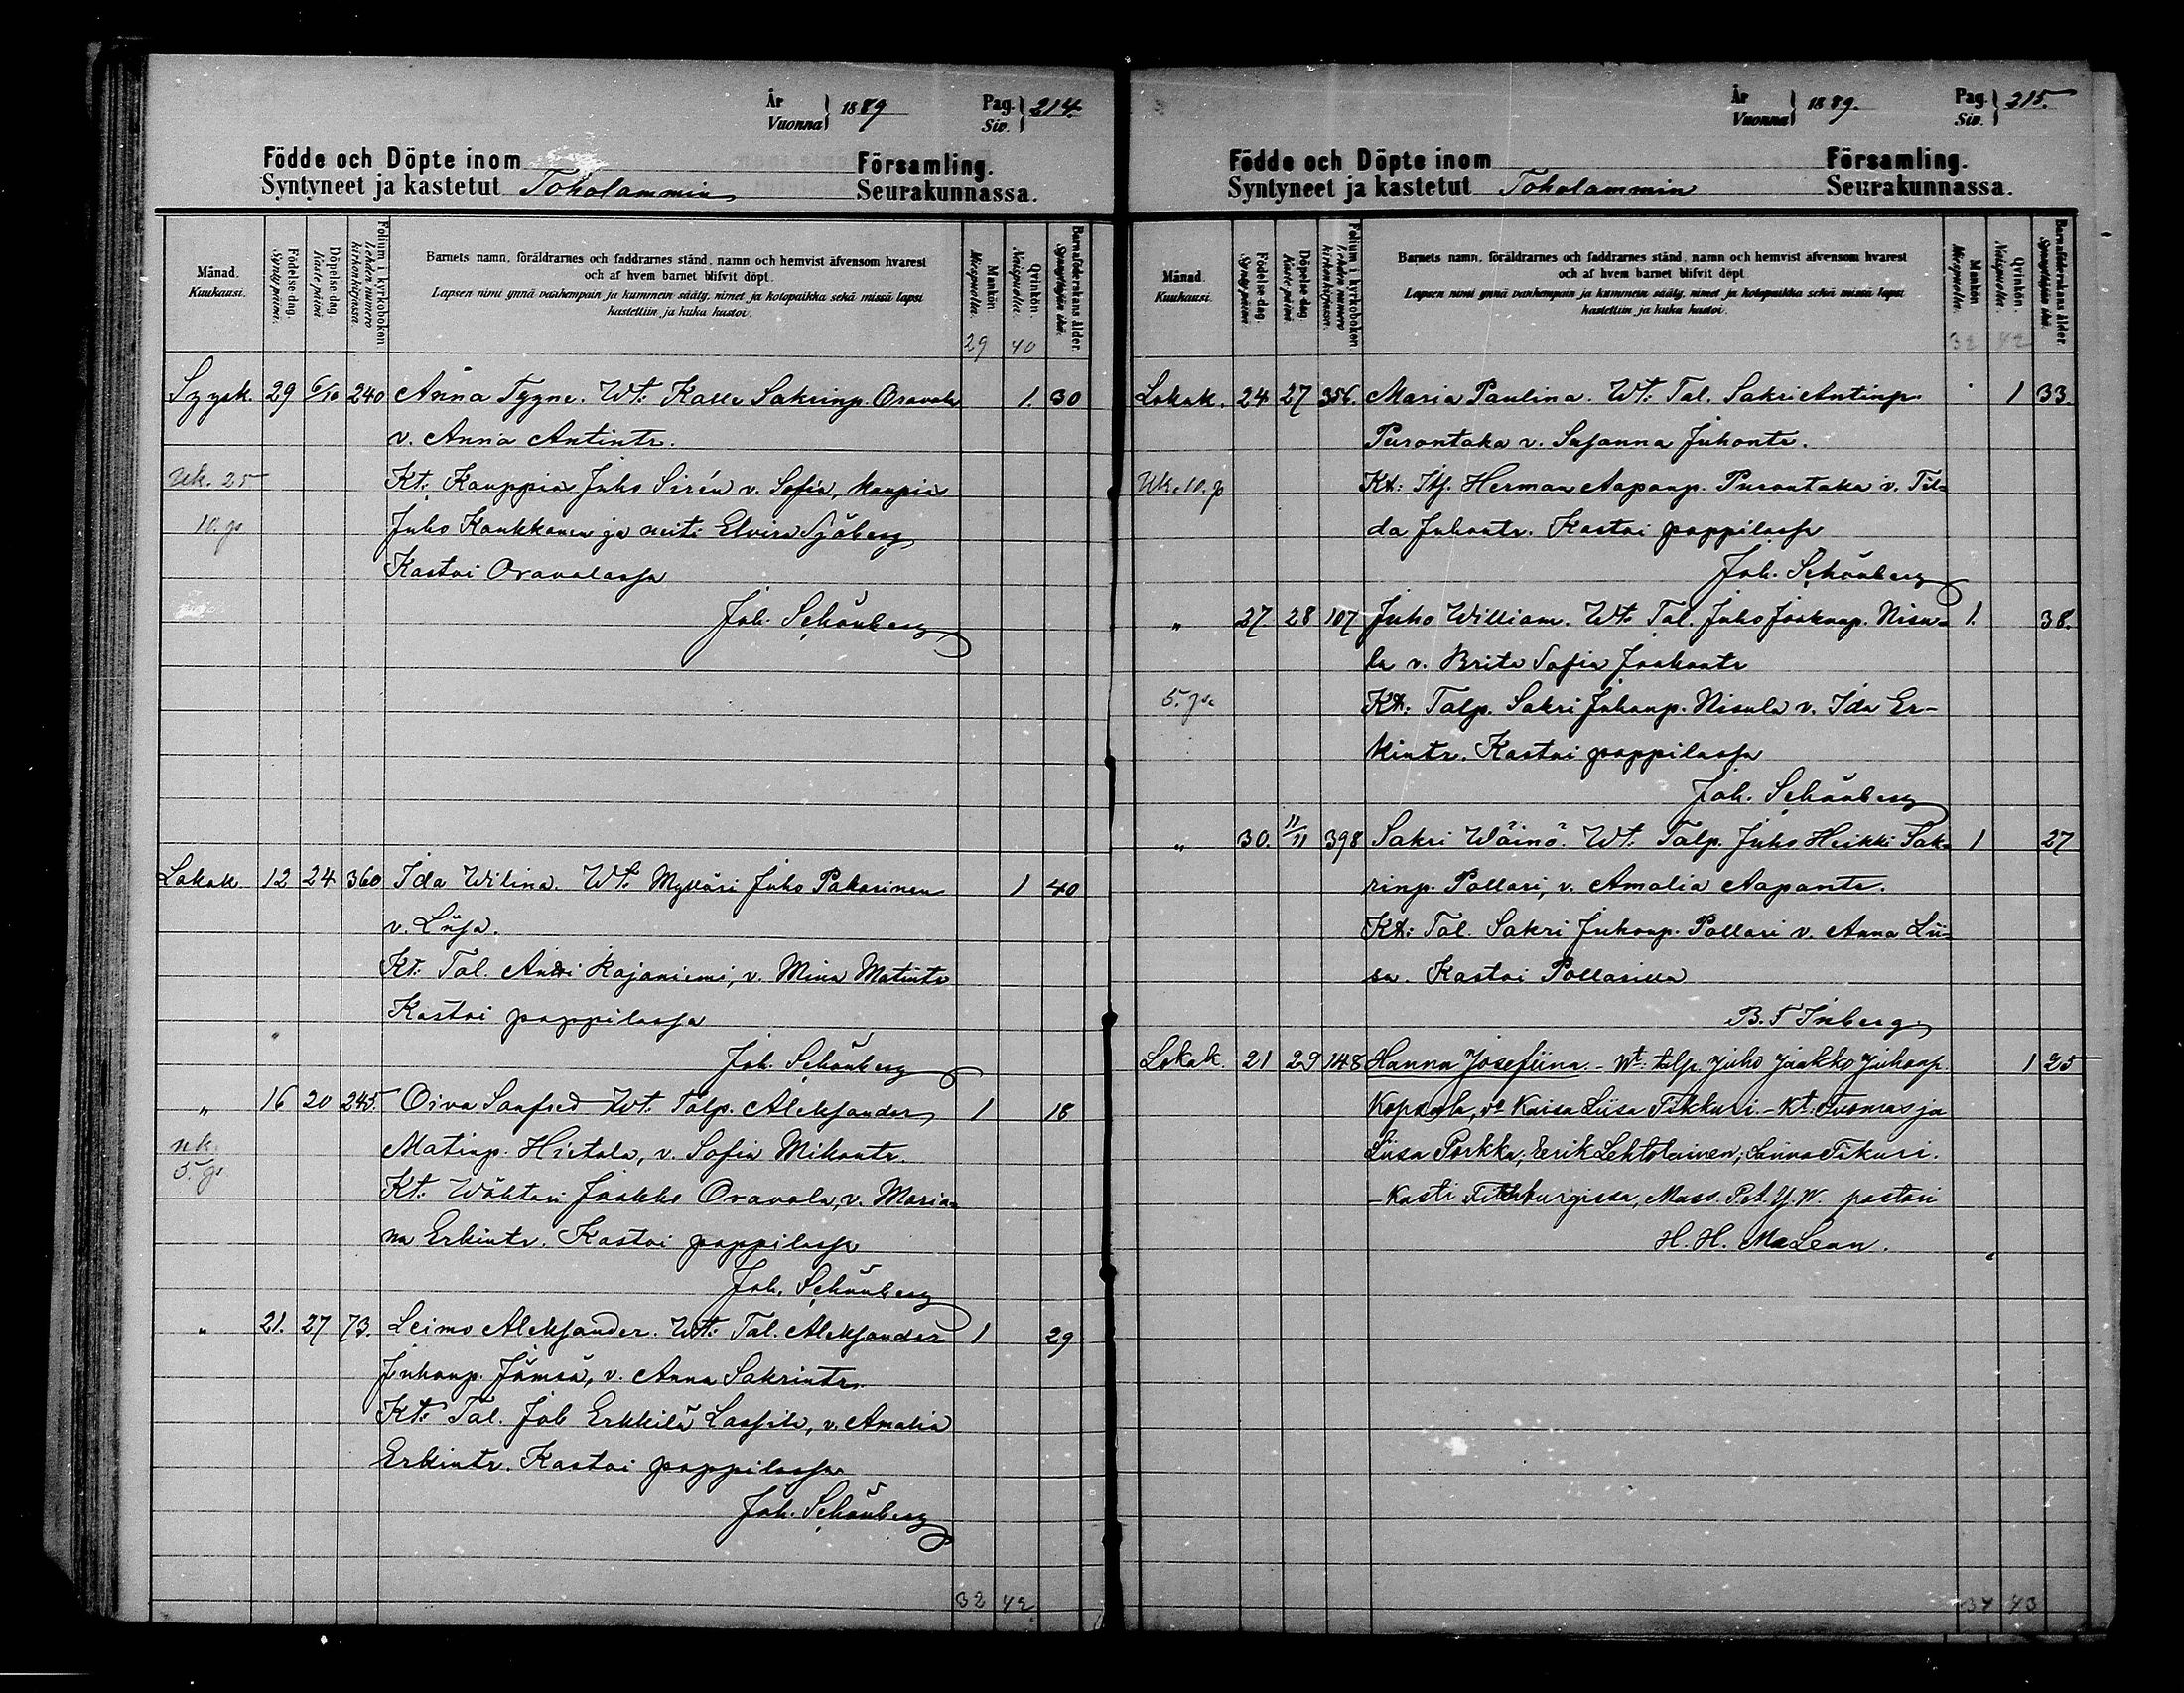 År
Vuonna } 1889
Pag.
Siv. } 214.
Födde och Döpte inom Församling.
Syntyneet ja kastetut Toholammin Seurakunnassa.
Månad.
Kuukausi.
Födelse-dag.
Syntypäivä.
Döpelse-dag
Kastepäivä
Folium i kyrkoboken
Lehden numero kirkonkirjassa
Barnets namn, föräldrarnes och faddrarnes stånd, namn och hemvist äfvensom hvarest
och af hvem barnet blifvit döpt.
Lapsen nimi ynnä vanhempain ja kummein sääty, nimet ja kotopaikka sekä missä lapsi
kastettiin ja kuka kastoi.
Mankön
Miespuolia.
Qvinkön.
Vaispuolia.
Barnaföderskans ålder.
Synnyttäjän ikä.
29 40
Syysk. 29 6/10 240 Anna Tyyne. Wt: Kalle Sakrinp. Oravala 1. 30
v. Anna Antintr.
uk. 25 Kt: Kauppias Juho Sirén v. Sofia, kaupias
10. ps Juho Kaukkonen ja neiti Elvira Sjöberg
Kastoi Oravalassa
Joh. Schönberg
Lokak. 12 24 360 Ida Wilina. Wt: Mylläri Juho Pakarinen 1 40
v. Liisa.
Kt: Tal. Antti Rajaniemi, v. Mina Matintr
Kastoi pappilassa
Joh. Schönberg
„ 16 20 245. Oiva Sanfred Wt: Talp. Aleksander 1 18
uk. Matinp. Hietala, v. Sofia Mikontr.
5. ps Kt: Wähtöri Jaakko Oravala, v. Maria-
na Erkintr. Kastoi pappilassa
Joh. Schönberg
„ 21. 27 73. Leimo Aleksander. Wt: Tal. Aleksander 1 29
Juhonp. Jämsä, v. Anna Sakrintr.
Kt: Tal. Joh Erkkilä Lassila, v. Amalia
Erkintr. Kastoi pappilassa
Joh. Schönberg
32 42
År
Vuonna } 1889.
Pag.
Siv. } 215.
Födde och Döpte inom Församling.
Syntyneet ja kastetut Toholammin Seurakunnassa.
Månad.
Kuukausi.
Födelse-dag.
Syntypäivä
Döpelse-dag
Kastepäivä
Folium i kyrkoboken
Lehden numero kirkonkirjassa
Barnets namn, föräldrarnes och faddrarnes stånd, namn och hemvist äfvensom hvarest
och af hvem barnet blifvit döpt.
Lapsen nimi ynnä vanhempain ja kummein sääty, nimet ja kotopaikka sekä missä lapsi
kastettiin ja kuka kastoi.
Mankön
Miespuolia.
Qvinkön.
Vaispuolia.
Barnaföderskans ålder.
Synnyttäjän ikä.
32 42
Lokak. 24 27 356. Maria Paulina. Wt: Tal. Sakri Antinp. 1 33.
Purontaka v. Susanna Juhontr.
Uk. 10. p Kt: Its. Herman Aaponp. Purontaka v. Til-
da Juhontr. Kastoi pappilassa
Joh. Schönberg
„ 27 28 107 Juho William. Wt: Tal. Juho Jaakonp. Nisu- 1. 38.
la v. Brita Sofia Jaakontr
5. ps. Kt: Talp. Sakri Juhonp. Nisula v. Ida Er-
kintr. Kastoi pappilassa
Joh. Schönberg
„ 30. 11/11 398 Sakri Wäinö. Wt: Talp. Juho Heikki Sak- 1 27
rinp. Pollari, v. Amalia Aapontr.
Kt: Tal. Sakri Juhonp. Pollari v. Anna Lii-
sa. Kastoi Pollarilla
B. F Inberg.
Lokak. 21 29 148 Hanna Josefiina. - Wt: talp. Juho Jaakko Juhonp. 1 25
Kopsala, v. Kaisa Liisa Tikkuri. - Kt: Tuomas ja
Liisa Porkka; Erik Lehtolainen; Sanna Tikuri.
- Kasti Fitchburgissa, Mass. P.A. Y.W. pastori
H. H. MacLean.
37 43